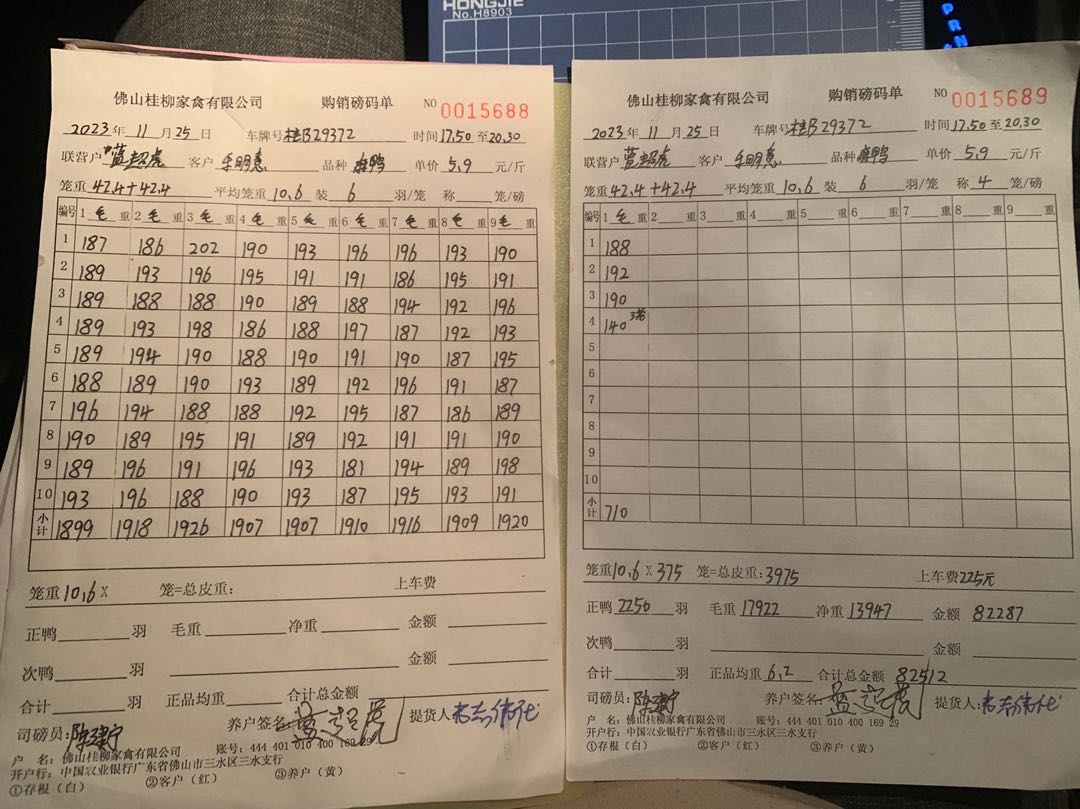 HONGJIE
No.H8903
佛山桂柳家禽有限公司 购销磅码单 NO 0015688
2023年 11月25日 车牌号桂B29372 时间17.50至20.30
联营户 蓝超虎 客户 品种 麻鸭 单价5.9元/斤
笼重42.4+42.4 平均笼重10.6装 6 羽/笼 称 笼/磅
编号 1毛重 2毛重 3毛重 4毛重 5毛重 6毛重 7毛重 8毛重 9毛重
1 187 186 202 190 193 196 196 193 190
2 189 193 196 195 191 191 186 195 191
3 189 188 188 190 189 188 194 192 196
4 189 193 198 186 188 197 187 192 193
5 189 194 190 188 190 191 190 187 195
6 188 189 190 193 189 192 196 191 187
7 196 194 188 188 192 195 187 186 189
8 190 189 195 191 189 192 191 191 190
9 189 196 191 196 193 181 194 189 198
10 193 196 188 190 193 187 195 193 191
小计 1899 1918 1926 1907 1907 1910 1916 1909 1920
笼重10.6X 笼=总皮重: 上车费
正鸭 羽 毛重 净重 金额
次鸭 羽 金额
合计 羽 正品均重 合计总金额
司磅员: 养户签名 蓝超虎 提货人:
户 名: 佛山桂柳家禽有限公司 账号: 444 401 010 400 169 29
开户行: 中国农业银行广东省佛山市三水区三水支行
①存根(白) ②客户(红) ③养户(黄)
佛山桂柳家禽有限公司 购销磅码单 NO 0015689
2023年 11月25日 车牌号桂B29372 时间17.50至20.30
联营户 蓝超虎 客户 品种 麻鸭 单价 5.9元/斤
笼重42.4+42.4 平均笼重10.6装 6 羽/笼 称 4 笼/磅
编号 1毛重 2 重 3 重 4 重 5 重 6 重 7 重 8 重 9 重
1 188
2 192
3 190
4 140 3笼
5
6
7
8
9
10
小计 710
笼重10.6X375 笼=总皮重:3975 上车费225元
正鸭 2250 羽 毛重 17922 净重13947 金额 82287
次鸭 羽 金额
合计 羽 正品均重6.2 合计总金额 82512
司磅员: 养户签名: 蓝超虎 提货人:
户 名: 佛山桂柳家禽有限公司 账号: 444 401 010 400 169 29
开户行: 中国农业银行广东省佛山市三水区三水支行
①存根(白) ②客户(红) ③养户(黄)